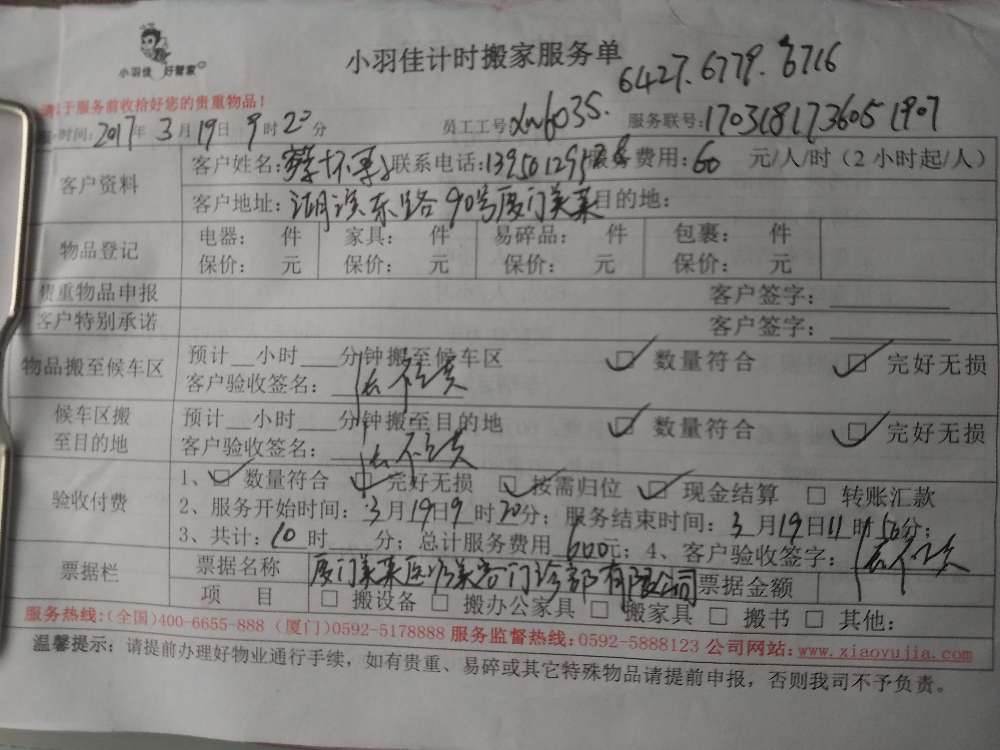 小羽佳 好管家
小羽佳计时搬家服务单
6427.6779.6716
请于服务前收拾好您的贵重物品！
时间：2017年3月19日9时20分 员工工号 xm6035. 服务联号：170318173605 1907
客户资料 客户姓名： 联系电话：139501295 服务费用：60 元/人/时（2小时起/人）
客户地址：湖滨东路90号厦门美莱 目的地：
物品登记 电器： 件 家具： 件 易碎品： 件 包裹： 件
保价： 元 保价： 元 保价： 元 保价： 元
贵重物品申报 客户签字：
客户特别承诺 客户签字：
物品搬至候车区 预计__小时___分钟搬至候车区 数量符合 完好无损
客户验收签名：
候车区搬至目的地 预计__小时___分钟搬至目的地 数量符合 完好无损
客户验收签名：
验收付费 1、 数量符合 完好无损 按需归位 现金结算 □ 转账汇款
2、服务开始时间：3月19日9时20分；服务结束时间：3月19日11时50分；
3、共计：10时____分；总计服务费用 600元；4、客户验收签字：
票据栏 票据名称 厦门美莱医疗美容门诊部有限公司 票据金额
项 目 □ 搬设备 □ 搬办公家具 □ 搬家具 □ 搬书 □ 其他：
服务热线：(全国)400-6655-888 (厦门)0592-5178888 服务监督热线：0592-5888123 公司网站：www.xiaoyujia.com
温馨提示：请提前办理好物业通行手续，如有贵重、易碎或其它特殊物品请提前申报，否则我司不予负责。